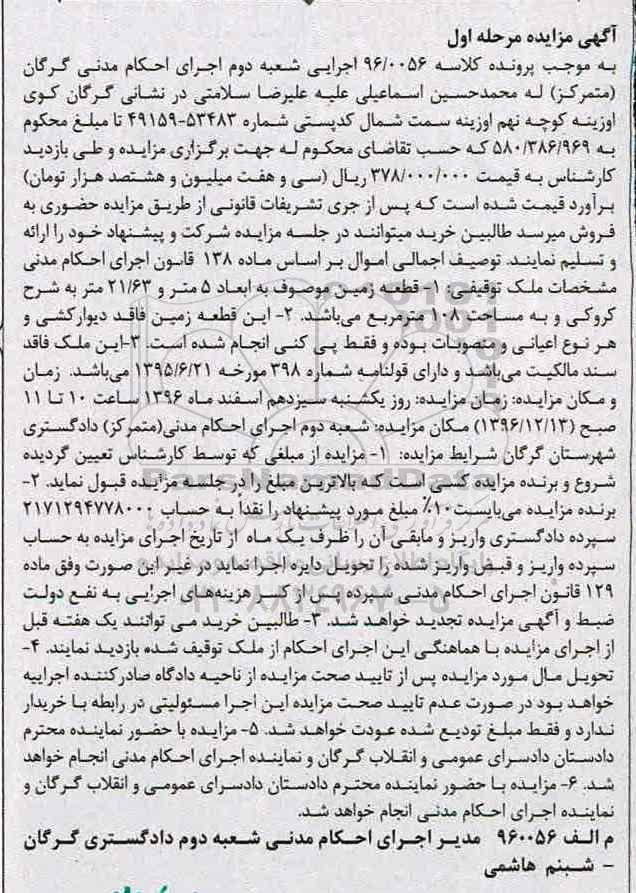 آگهی مزایده مرحله اول
به موجب پرونده کلاسه ۹۶/۰۰۵۶ اجرایی شعبه دوم اجرای احکام مدنی گرگان
(متمرکز) له محمدحسین اسماعیلی علیه علیرضا سلامتی در نشانی گرگان کوی
اوزینه کوچه نهم اوزینه سمت شمال کدپستی شماره ۵۳۴۸۳-۴۹۱۵۹ تا مبلغ محکوم
به ۵۸۰/۳۸۶/۹۶۹ که حسب تقاضای محکوم له جهت برگزاری مزایده و طی بازدید
کارشناس به قیمت ۳۷۸/۰۰۰/۰۰۰ ریال (سی و هفت میلیون و هشتصد هزار تومان)
برآورد قیمت شده است که پس از جری تشریفات قانونی از طریق مزایده حضوری به
فروش میرسد طالبین خرید میتوانند در جلسه مزایده شرکت و پیشنهاد خود را ارائه
و تسلیم نمایند. توصیف اجمالی اموال بر اساس ماده ۱۳۸ قانون اجرای احکام مدنی
مشخصات ملک توقیفی: ۱- قطعه زمین موصوف به ابعاد ۵ متر و ۲۱/۶۳ متر به شرح
کروکی و به مساحت ۱۰۸ مترمربع می‌باشد. ۲- این قطعه زمین فاقد دیوارکشی و
هر نوع اعیانی و منصوبات بوده و فقط پی کنی انجام شده است. ۳-این ملک فاقد
سند مالکیت می‌باشد و دارای قولنامه شماره ۳۹۸ مورخه ۱۳۹۵/۶/۲۱ می‌باشد. زمان
و مکان مزایده: زمان مزایده: روز یکشنبه سیزدهم اسفند ماه ۱۳۹۶ ساعت ۱۰ تا ۱۱
صبح (۱۳۹۶/۱۲/۱۳) مکان مزایده: شعبه دوم اجرای احکام مدنی(متمرکز) دادگستری
شهرستان گرگان شرایط مزایده: ۱- مزایده از مبلغی که توسط کارشناس تعیین گردیده
شروع و برنده مزایده کسی است که بالاترین مبلغ را در جلسه مزایده قبول نماید. ۲-
برنده مزایده می‌بایست۱۰٪ مبلغ مورد پیشنهاد را نقداً به حساب ۲۱۷۱۲۹۴۷۷۸۰۰۰
سپرده دادگستری واریز و مابقی آن را ظرف یک ماه از تاریخ اجرای مزایده به حساب
سپرده واریز و قبض واریز شده را تحویل دایره اجرا نماید در غیر این صورت وفق ماده
۱۲۹ قانون اجرای احکام مدنی سپرده پس از کسر هزینه‌های اجرایی به نفع دولت
ضبط و آگهی مزایده تجدید خواهد شد. ۳- طالبین خرید می توانند یک هفته قبل
از اجرای مزایده با هماهنگی این اجرای احکام از ملک توقیف شده بازدید نمایند. ۴-
تحویل مال مورد مزایده پس از تایید صحت مزایده از ناحیه دادگاه صادرکننده اجراییه
خواهد بود در صورت عدم تایید صحت مزایده این اجرا مسئولیتی در رابطه با خریدار
ندارد و فقط مبلغ تودیع شده عودت خواهد شد. ۵- مزایده با حضور نماینده محترم
دادستان دادسرای عمومی و انقلاب گرگان و نماینده اجرای احکام مدنی انجام خواهد
شد. ۶- مزایده با حضور نماینده محترم دادستان دادسرای عمومی و انقلاب گرگان و
نماینده اجرای احکام مدنی انجام خواهد شد.
م الف ۹۶۰۰۵۶ مدیر اجرای احکام مدنی شعبه دوم دادگستری گرگان
- شبنم هاشمی
ParsNamadData